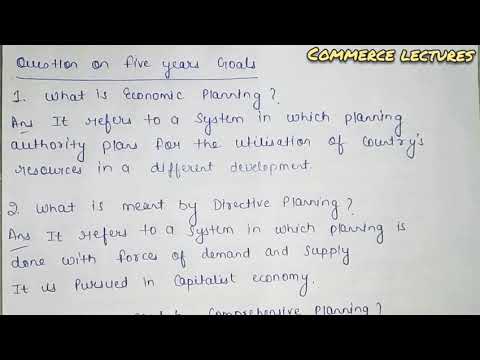 COMMERCE LECTURES
Question on five years Goals
1. What is Economic Planning?
Ans It refers to a System in which planning
authority plans for the utilisation of Country's
resources in a different development.
2. What is meant by Directive Planning?
Ans It refers to a System in which planning is
done with forces of demand and supply
It is Pursued in Capitalist economy.
Comprehensive Planning?